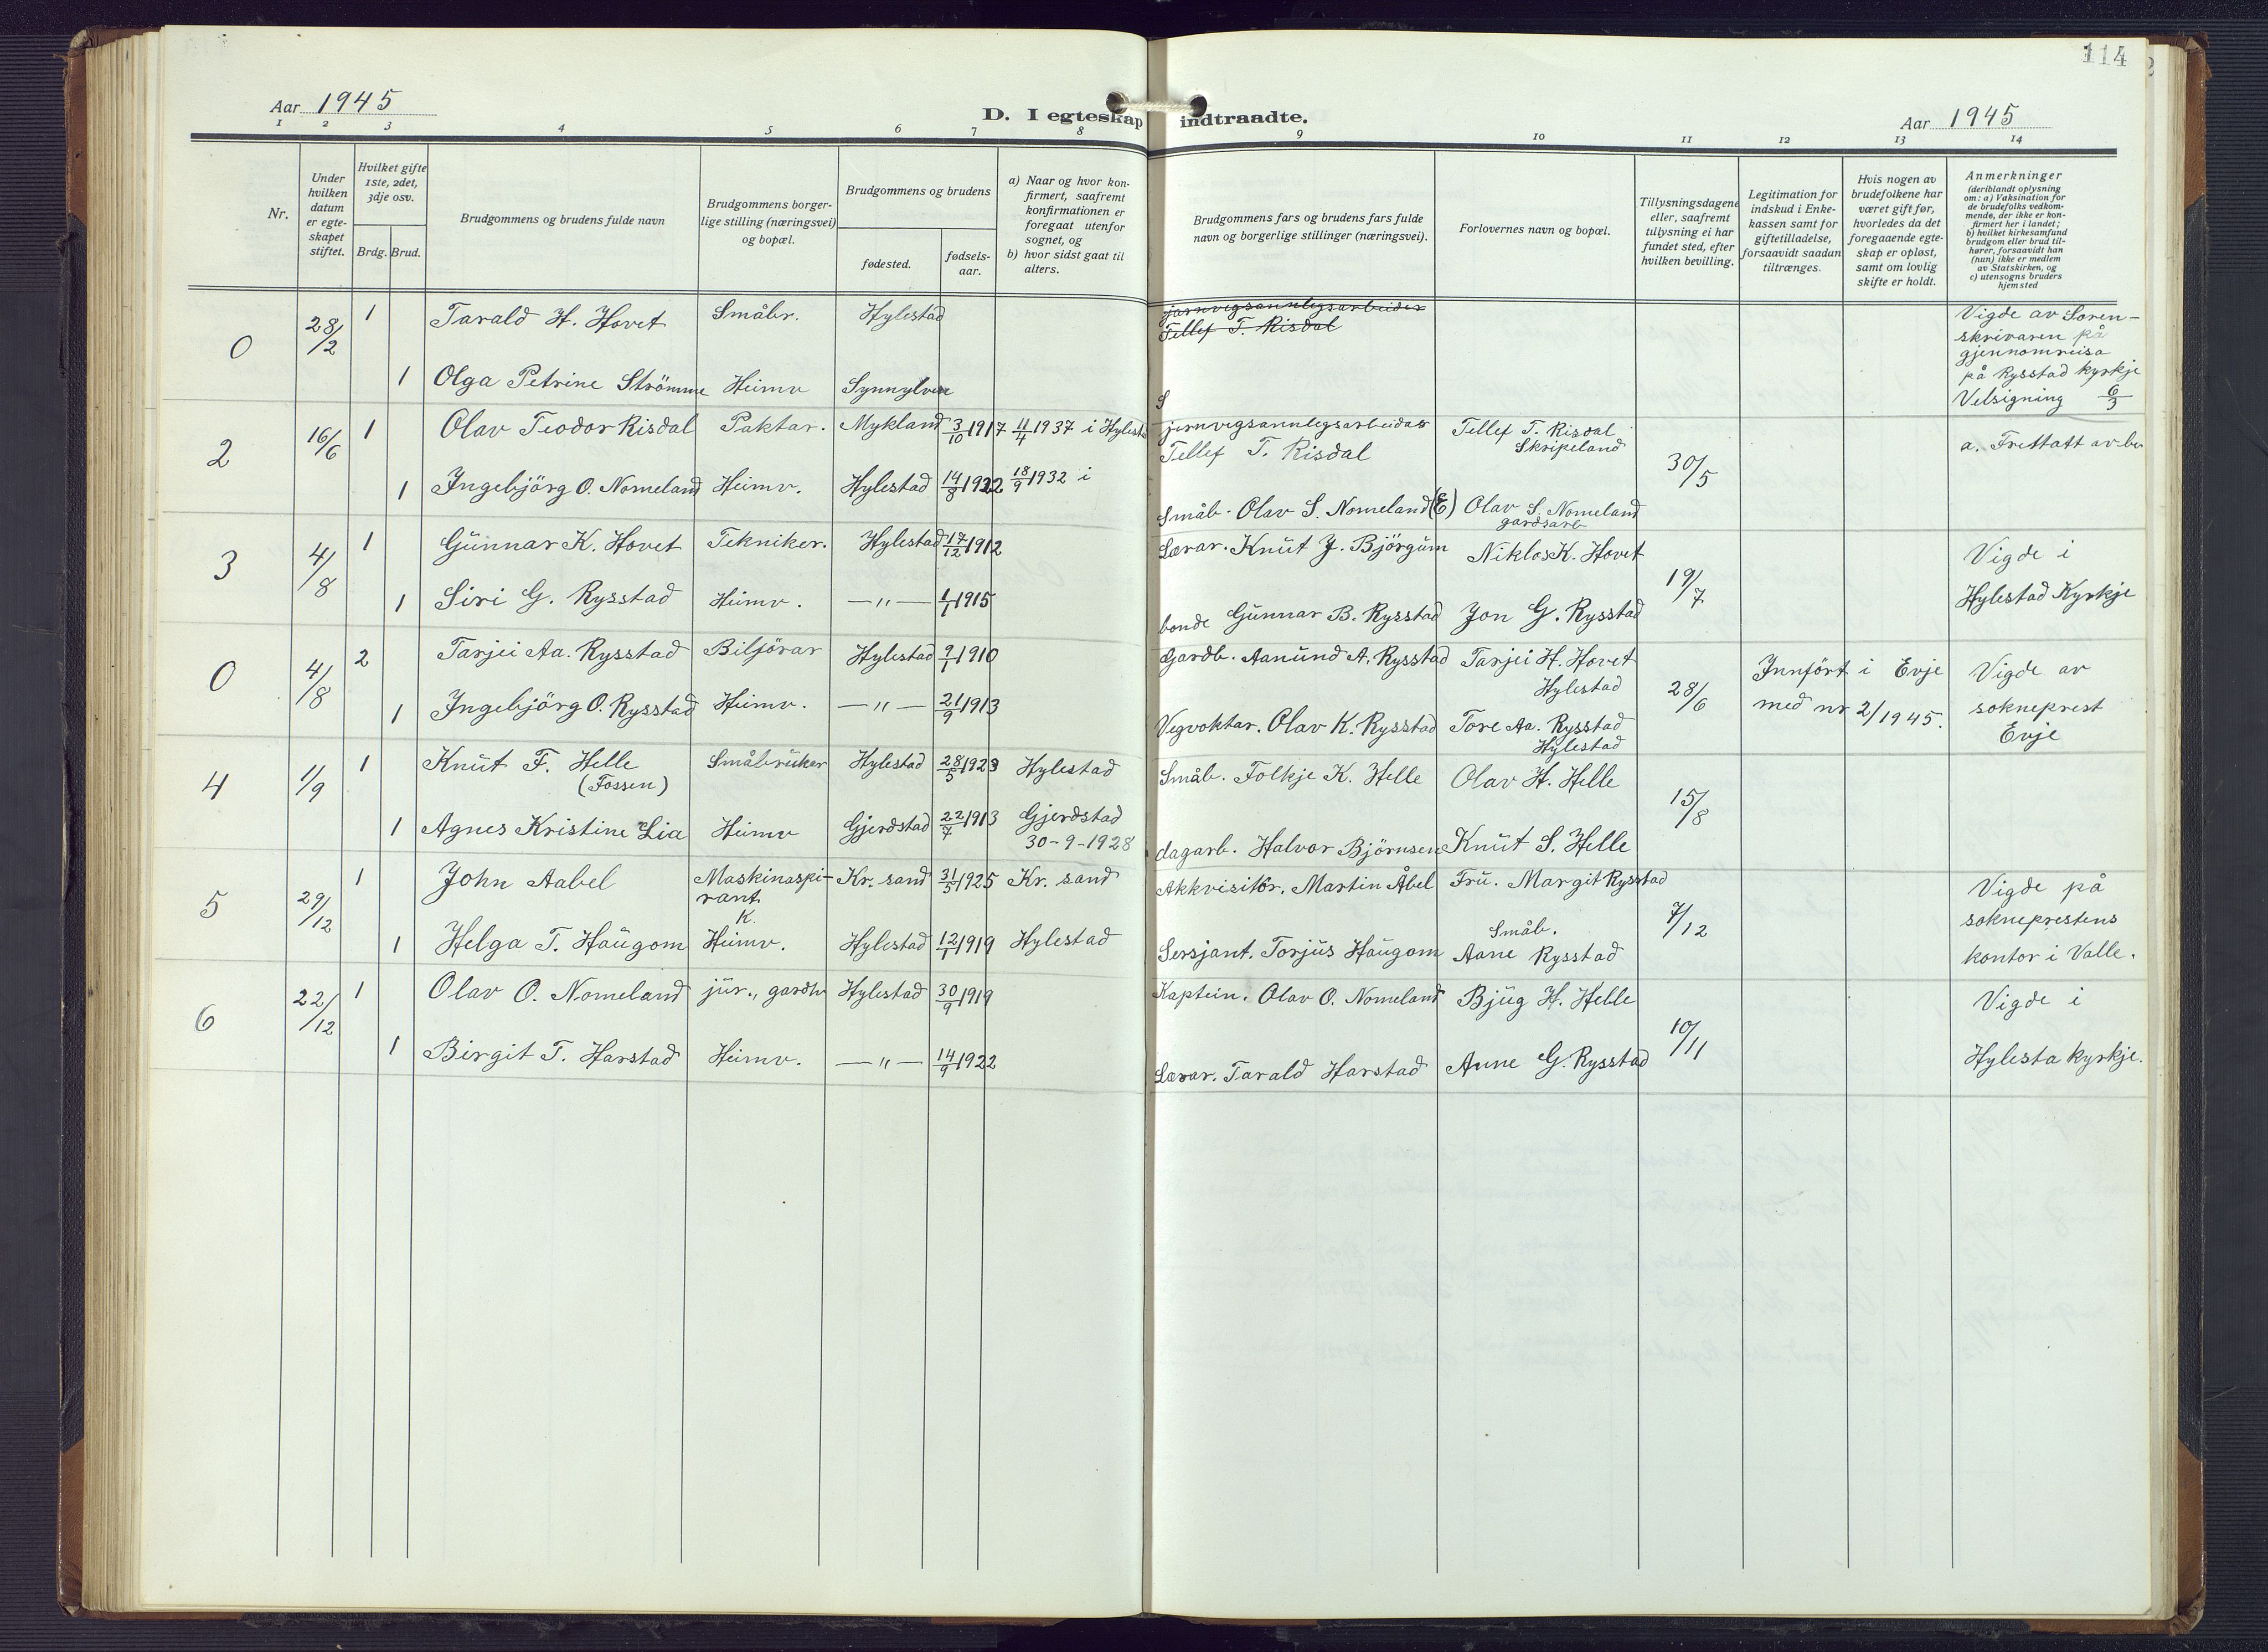 114
Aar 1945
D. I egteskap indtraadte.
Aar 1945
1 2 3 4 5 6 7 8 9 10 11 12 13 14
Nr.
Under hvilken datum er egteskapet stiftet.
Hvilket gifte 1ste, 2det, 3dje osv.
Brdg. Brud.
Brudgommens og brudens fulde navn
Brudgommens borgerlige stilling (næringsvei) og bopæl.
Brudgommens og brudens
fødested.
fødselsaar.
a) Naar og hvor konfirmert, saafremt konfirmationen er foregaat utenfor sognet, og
b) hvor sidst gaat til alters.
Brudgommens fars og brudens fars fulde navn og borgerlige stillinger (næringsvei).
Forlovernes navn og bopæl.
Tillysningsdagene eller, saafremt tillysning ei har fundet sted, efter hvilken bevilling.
Legitimation for indskud i Enkekassen samt for giftetilladelse, forsaavidt saadan tiltrænges.
Hvis nogen av brudefolkene har været gift før, hvorledes da det foregaaende egteskap er opløst, samt om lovlig skifte er holdt.
Anmerkninger
(deriblandt oplysning om: a) Vaksination for de brudefolks vedkommende, der ikke er konfirmert her i landet; b) hvilket kirkesamfund brudgom eller brud tilhører, forsaavidt han (hun) ikke er medlem av Statskirken, og c) utensogns bruders hjemsted
0 28/2 1 Tarald H. Hovet Småbr. Hylestad
jarnvegsannlegsarbeider
Tellef T. Risdal
Vigde av Soren-
skrivaren på
gjennomreisa
på Rysstad kyrkje
Velsigning 6/3
1 Olga Petrine Strömme Heimv Synnylven
S
2 16/6 1 Olav Teodor Risdal Paktar. Mykland 3/10 1917 11/4 1937 i Hylest
jernvegsannlegsarbeidar
Tellef T. Risdal
Tellef T. Risdal
Skripeland
30/5
a. Frettatt av
1 Ingebjörg O. Nomeland Heimv. Hylestad 14/8 1922 18/9 1932 i
Småb. Olav S. Nomeland (E) Olav S. Nomeland
gardsarb
3 4/8 1 Gunnar K. Hovet Tekniker. Hylestad 17/12 1912
Lærar. Knut J. Björgum Niklos K. Hovet
19/7
Vigde i
Hylestad Kyrkje
1 Siri G. Rysstad Heimv. — " — 1/1 1915
bonde Gunnar B. Rysstad Jon G. Rysstad
0 4/8 2 Tarjei Aa. Rysstad Biljörar Hylestad 9/1 1910
Gardb. Aanund A. Rysstad Tarjei H. Hovet
Hylestad
28/6
Innfört i Evje
med nr 2/1945.
Vigde av
sokneprest
Evje
1 Ingebjörg O. Rysstad Heimv. — " — 21/9 1913
Vegvoktar. Olav K. Rysstad Tore Aa. Rysstad
Hylestad
4 1/9 1 Knut F. Helle
(Fossen)
Småbruker Hylestad 28/5 1923 Hylestad
Småb. Folkje K. Helle Olav H. Helle
15/8
1 Agnes Kristine Lia Heimv Gjerdstad 22/7 1913 Gjerdstad
30-9-1928
dagarb. Halvor Björnsen Knut S. Helle
5 29/12 1 John Aabel Maskinaspi-
rant
K.
Kr. sand 31/5 1925 Kr. sand
Akkvisitör. Martin Åbel Fru. Margit Rysstad
7/12
Vigde på
sokneprestens
kontor i Valle.
1 Helga T. Haugom Heimv. Hylestad 12/1 1919 Hylestad
Sersjant. Torjus Haugom
Småb.
Aane Rysstad
6 22/12 1 Olav O. Nomeland jur., gardbr Hylestad 30/9 1919
Kaptein. Olav O. Nomeland Bjug H. Helle
10/11
Vigde i
Hylesta kyrkje.
1 Birgit T. Harstad Heimv. — " — 14/9 1922
Lærar. Tarald Harstad Anne G. Rysstad